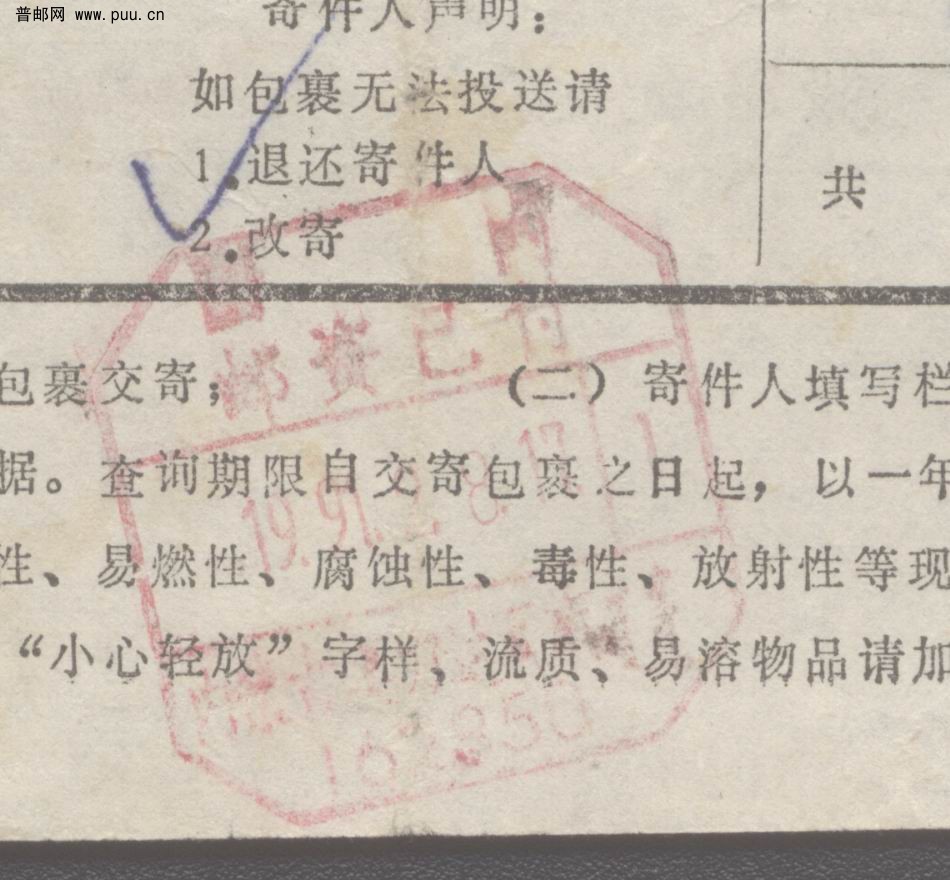 普邮网 www.puu.cn
寄件人声明：
如包裹无法投送请
1.退还寄件人
2.改寄
共
邮资已付
包裹交寄； （二）寄件人填写栏
1
据。查询期限自交寄包裹之日起，以一年
性、易燃性、腐蚀性、毒性、放射性等现
“小心轻放”字样、流质、易溶物品请加